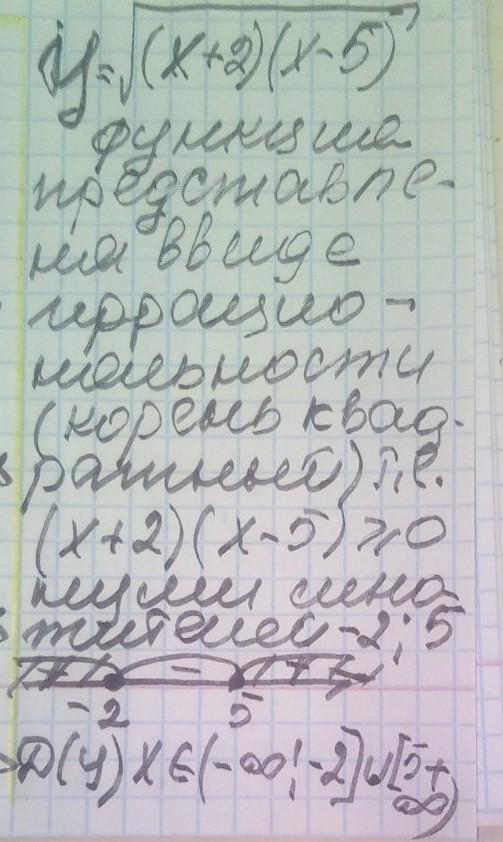 y=√(x+2)(x-5)
функция
представле-
на ввиде
иррацио-
нальности
(корень квад-
ратный) т.е.
(x+2)(x-5)≥0
нули мно-
жителей -2; 5
+ − +
-2 5
D(y) x∈(-∞; -2]∪[5+
∞)